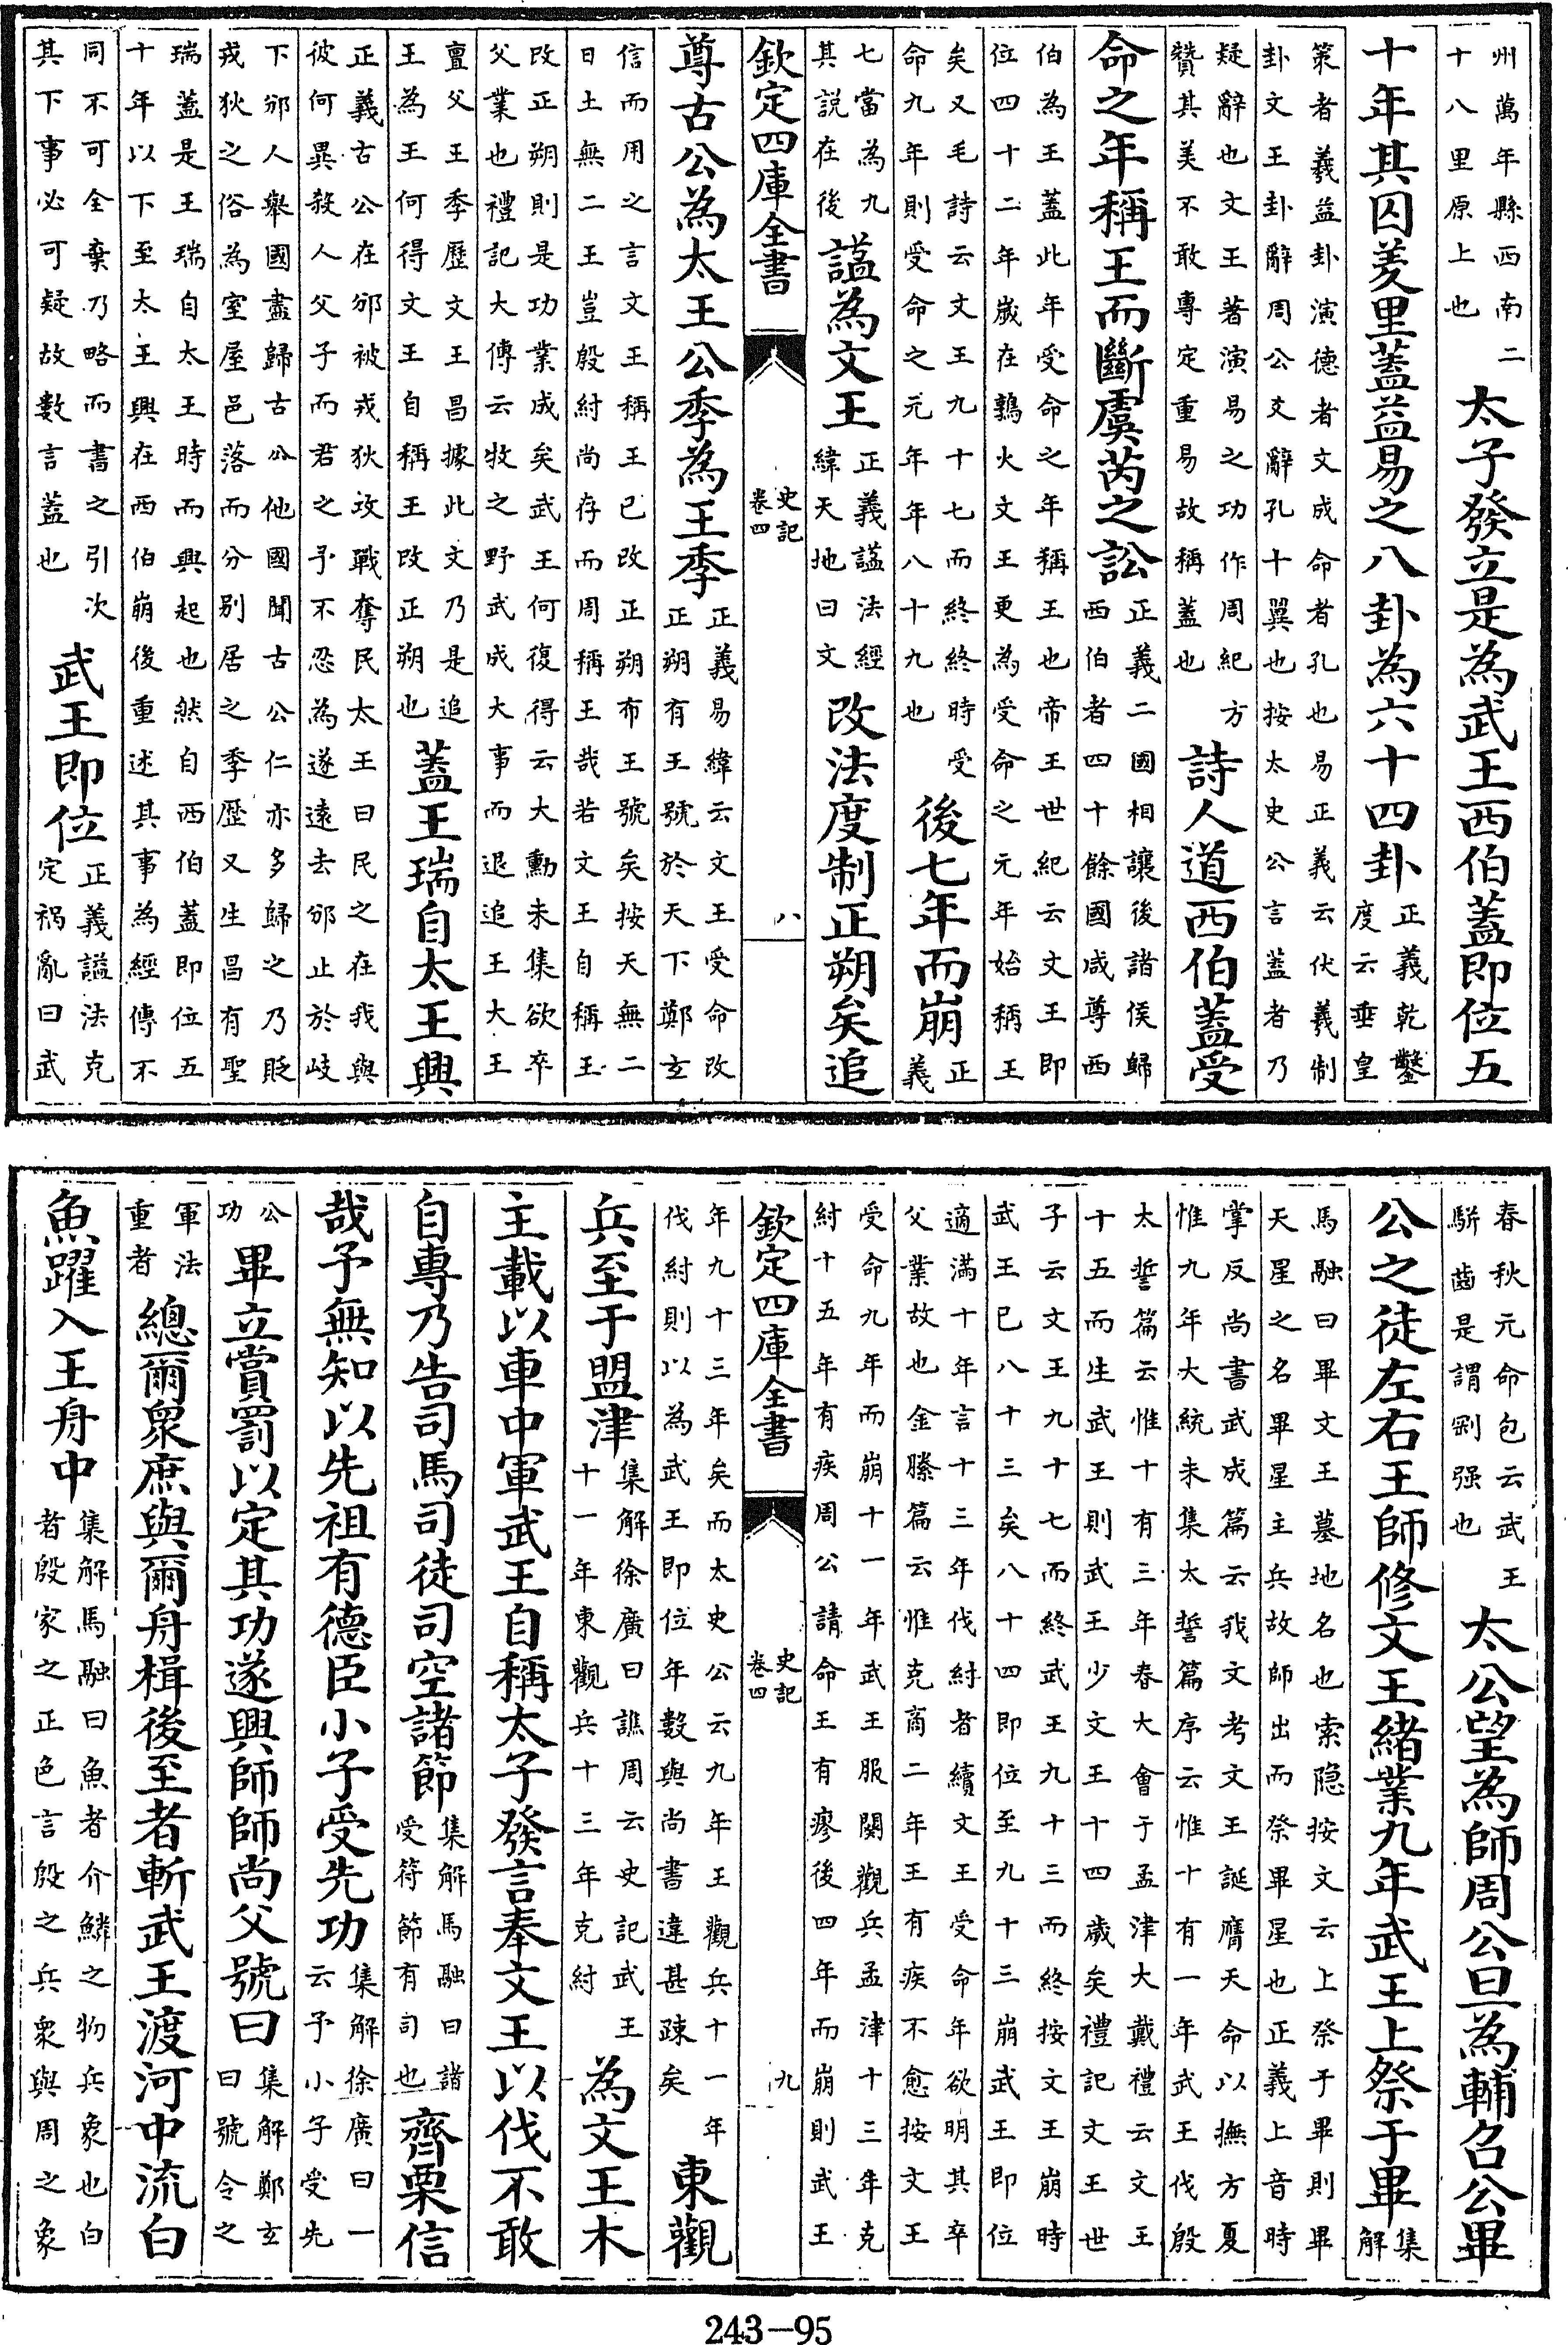 州萬年縣西南二
十八里原上也
太子發立是為武王西伯蓋即位五
十年其囚羑里蓋益易之八卦為六十四卦
正義乾鑿
度云垂皇
策者羲益卦演德者文成命者孔也易正義云伏羲制
卦文王卦辭周公爻辭孔十翼也按太史公言蓋者乃
疑辭也文王著演易之功作周紀方
贊其美不敢專定重易故稱蓋也
詩人道西伯蓋受
命之年稱王而斷虞芮之訟
正義二國相讓後諸侯歸
西伯者四十餘國咸尊西
伯為王蓋此年受命之年稱王也帝王世紀云文王即
位四十二年歲在鶉火文王更為受命之元年始稱王
矣又毛詩云文王九十七而終終時受
命九年則受命之元年年八十九也
後七年而崩
正
義
七當為九
其説在後
諡為文王
正義諡法經
緯天地曰文
改法度制正朔矣追
欽定四庫全書
史記
卷四
八
尊古公為太王公季為王季
正義易緯云文王受命改
正朔有王號於天下鄭玄
信而用之言文王稱王已改正朔布王號矣按天無二
日土無二王豈殷紂尚存而周稱王哉若文王自稱王
改正朔則是功業成矣武王何復得云大勳未集欲卒
父業也禮記大傳云牧之野武成大事而退追王大王
亶父王季歷文王昌據此文乃是追
王為王何得文王自稱王改正朔也
蓋王瑞自太王興
正義古公在邠被戎狄攻戰奪民太王曰民之在我與
彼何異殺人父子而君之予不忍為遂遠去邠止於岐
下邠人舉國盡歸古公他國聞古公仁亦多歸之乃貶
戎狄之俗為室屋邑落而分别居之季歷又生昌有聖
瑞蓋是王瑞自太王時而興起也然自西伯蓋即位五
十年以下至太王興在西伯崩後重述其事為經傳不
同不可全棄乃略而書之引次
其下事必可疑故數言蓋也
武王即位
正義諡法克
定禍亂曰武
春秋元命包云武王
駢齒是謂剛强也
太公望為師周公旦為輔召公畢
公之徒左右王師修文王緒業九年武王上祭于畢
集
解
馬融曰畢文王墓地名也索隐按文云上祭于畢則畢
天星之名畢星主兵故師出而祭畢星也正義上音時
掌反尚書武成篇云我文考文王誕膺天命以撫方夏
惟九年大統未集太誓篇序云惟十有一年武王伐殷
太誓篇云惟十有三年春大會于孟津大戴禮云文王
十五而生武王則武王少文王十四歲矣禮記文王世
子云文王九十七而終武王九十三而終按文王崩時
武王已八十三矣八十四即位至九十三崩武王即位
適滿十年言十三年伐紂者續文王受命年欲明其卒
父業故也金縢篇云惟克商二年王有疾不愈按文王
受命九年而崩十一年武王服闋觀兵孟津十三年克
紂十五年有疾周公請命王有瘳後四年而崩則武王
欽定四庫全書
史記
卷四
九
年九十三年矣而太史公云九年王觀兵十一年
伐紂則以為武王即位年數與尚書違甚疎矣
東觀
兵至于盟津
集解徐廣曰譙周云史記武王
十一年東觀兵十三年克紂
為文王木
主載以車中軍武王自稱太子發言奉文王以伐不敢
自專乃告司馬司徒司空諸節
集解馬融曰諸
受符節有司也
齊栗信
哉予無知以先祖有德臣小子受先功
集解徐廣曰一
云予小子受先
公
功
畢立賞罰以定其功遂興師師尚父號曰
集解鄭玄
曰號令之
軍法
重者
總爾衆庶與爾舟楫後至者斬武王渡河中流白
魚躍入王舟中
集解馬融曰魚者介鱗之物兵象也白
者殷家之正色言殷之兵衆與周之象
243-95